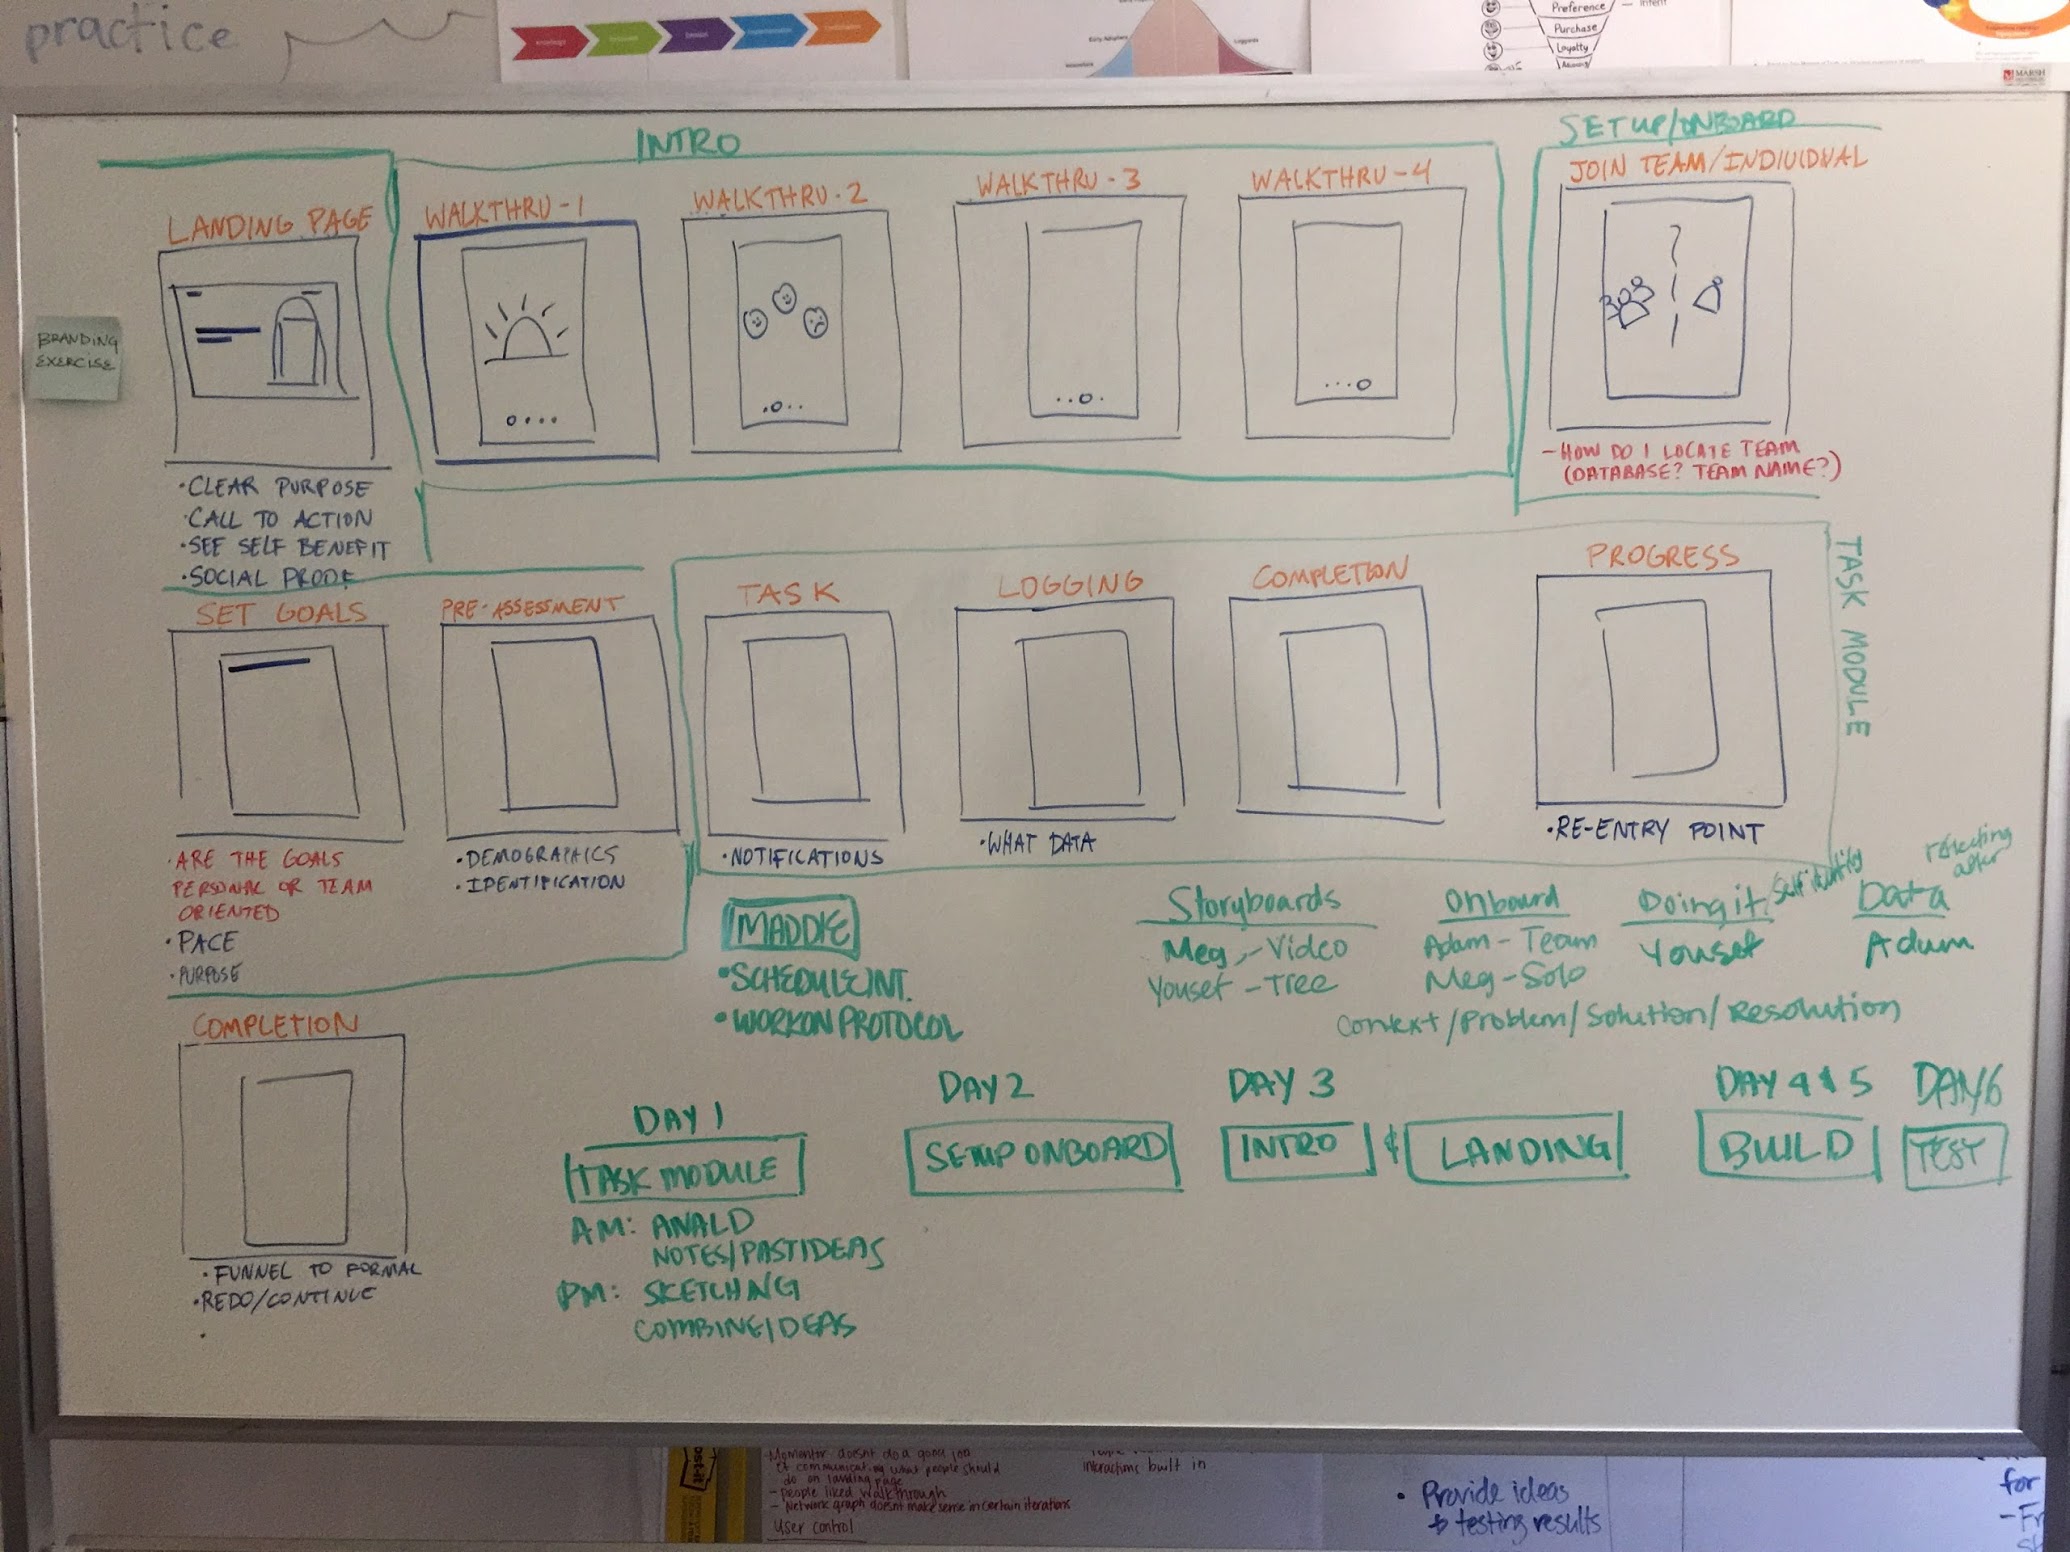 practice
Preference
Intent
Purchase
Loyalty
MARSH
INTRO
SETUP/ONBOARD
LANDING PAGE
WALKTHRU-1
WALKTHRU-2
WALKTHRU-3
WALKTHRU-4
JOIN TEAM/INDIVIDUAL
BRANDING
EXERCISE
- HOW DO I LOCATE TEAM
(DATABASE? TEAM NAME?)
• CLEAR PURPOSE
• CALL TO ACTION
• SEE SELF BENEFIT
• SOCIAL PROOF
SET GOALS
PRE-ASSESSMENT
TASK
LOGGING
COMPLETION
PROGRESS
TASK MODULE
• ARE THE GOALS
PERSONAL OR TEAM
ORIENTED
• PACE
• PURPOSE
• DEMOGRAPHICS
• IDENTIFICATION
• NOTIFICATIONS
• WHAT DATA
• RE-ENTRY POINT
MADDIE
• SCHEDULE INT.
• WORK ON PROTOCOL
Storyboards
Meg - Video
Yousef - Tree
Onboard
Adam - Team
Meg - Solo
Doing it/Self identify
Yousef
Data
Adam
Context/Problem/Solution/Resolution
COMPLETION
• FUNNEL TO FORMAL
• REDO/CONTINUE
•
DAY 1
TASK MODULE
AM:
NOTES/PAST IDEAS
PM: SKETCHNG
COMBINE IDEAS
DAY 2
SETUP ONBOARD
DAY 3
INTRO & LANDING
DAY 4 & 5
BUILD
DAY 6
TEST
Momentor doesnt do a good job
of communicating what people should
do on landing page
- people liked walkthrough
- Network graph doesnt make sense in certain iterations
User control
interactions built in
• Provide ideas
→ testing results
for